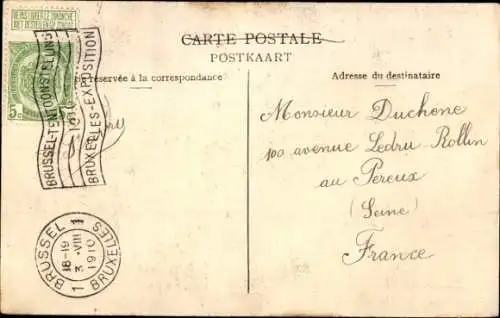 NE PAS LIVRER LE DIMANCHE
NIET BESTELLEN OP ZONDAG
5c
BRUSSEL-TENTOONSTELLING
1910
BRUXELLES-EXPOSITION
CARTE POSTALE
POSTKAART
réservée à la correspondance
Adresse du destinataire
Monsieur Duchêne
100 avenue Ledru Rollin
au Pereux
(Seine)
France
BRUSSEL 1
18-19
3 VIII
1910
1 BRUXELLES